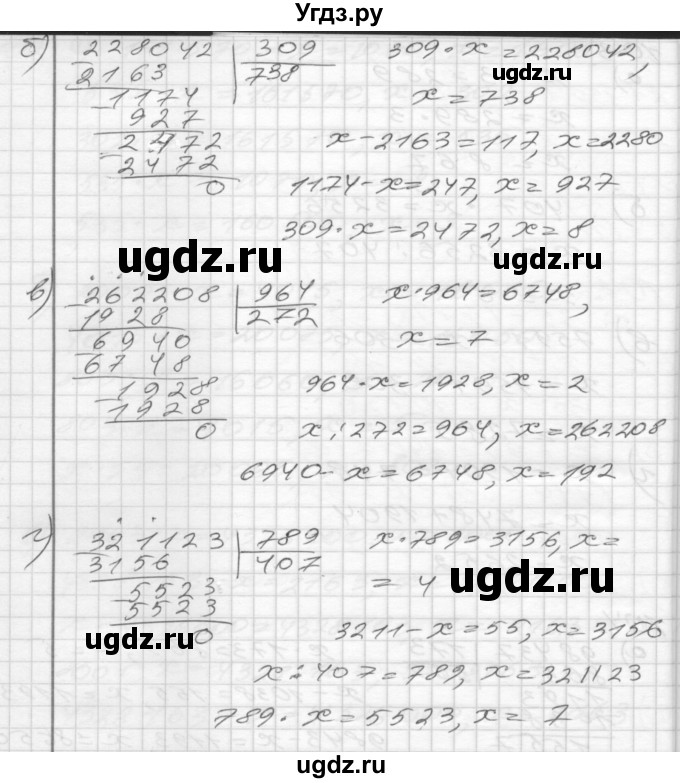 Угдз.ру
б) 228042 | 309
2163 | 738
1174
927
2472
2472
0
309·x=228042,
x=738
x-2163=117, x=2280
1174-x=247, x=927
309·x=2472, x=8
ugdz.ru
ugdz.ru
ugdz.ru
в) 262208 | 964
1928 | 272
6940
6748
1928
1928
0
x·964=6748,
x=7
964·x=1928, x=2
x:272=964, x=262208
6940-x=6748, x=192
г) 321123 | 789
3156 | 407
5523
5523
0
x·789=3156, x=
=4
3211-x=55, x=3156
x:407=789, x=321123
789·x=5523, x=7
ugdz.ru
ugdz.ru
ugdz.ru